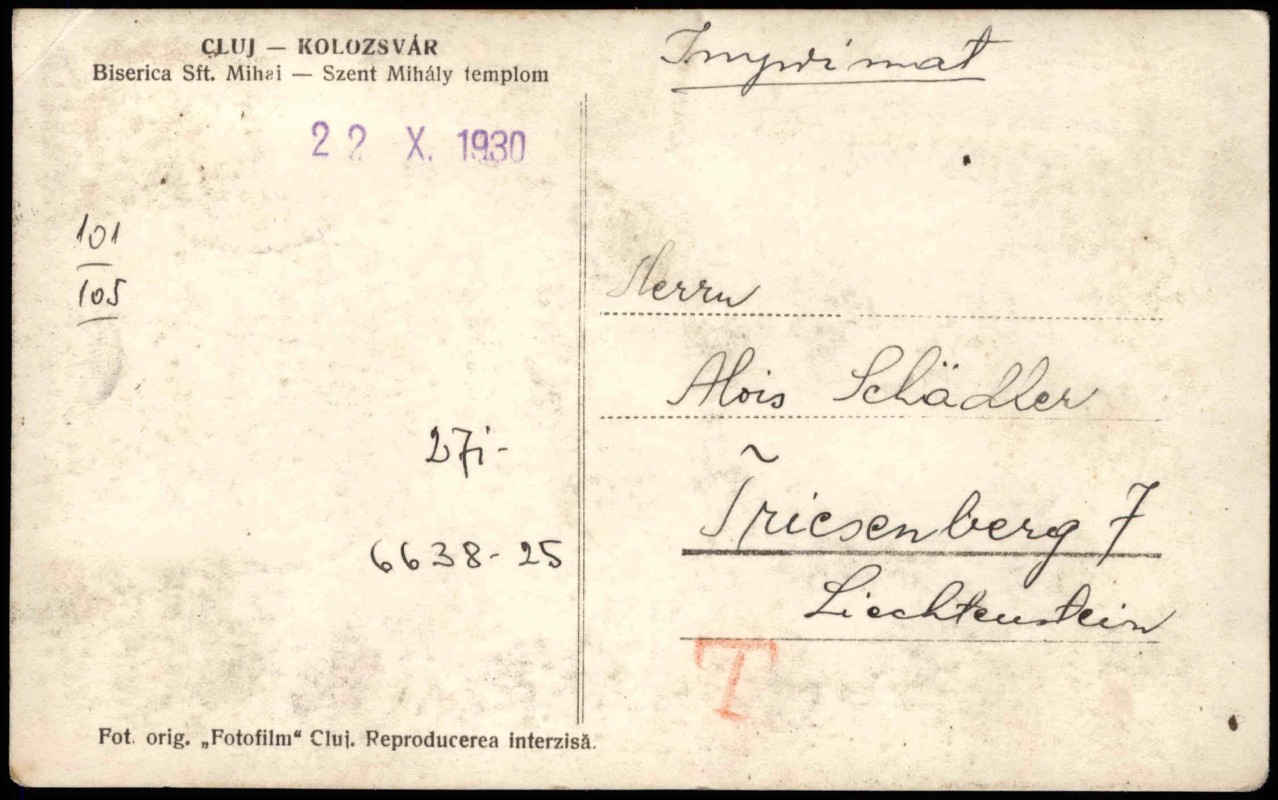 CLUJ — KOLOZSVÁR
Biserica Sft. Mihai — Szent Mihály templom
22 X. 1930
101
105
27i-
6638-25
Fot. orig. „Fotofilm“ Cluj. Reproducerea interzisă.
Imprimat
Herrn
Alois Schädler
Triesenberg 7
Liechtenstein
T